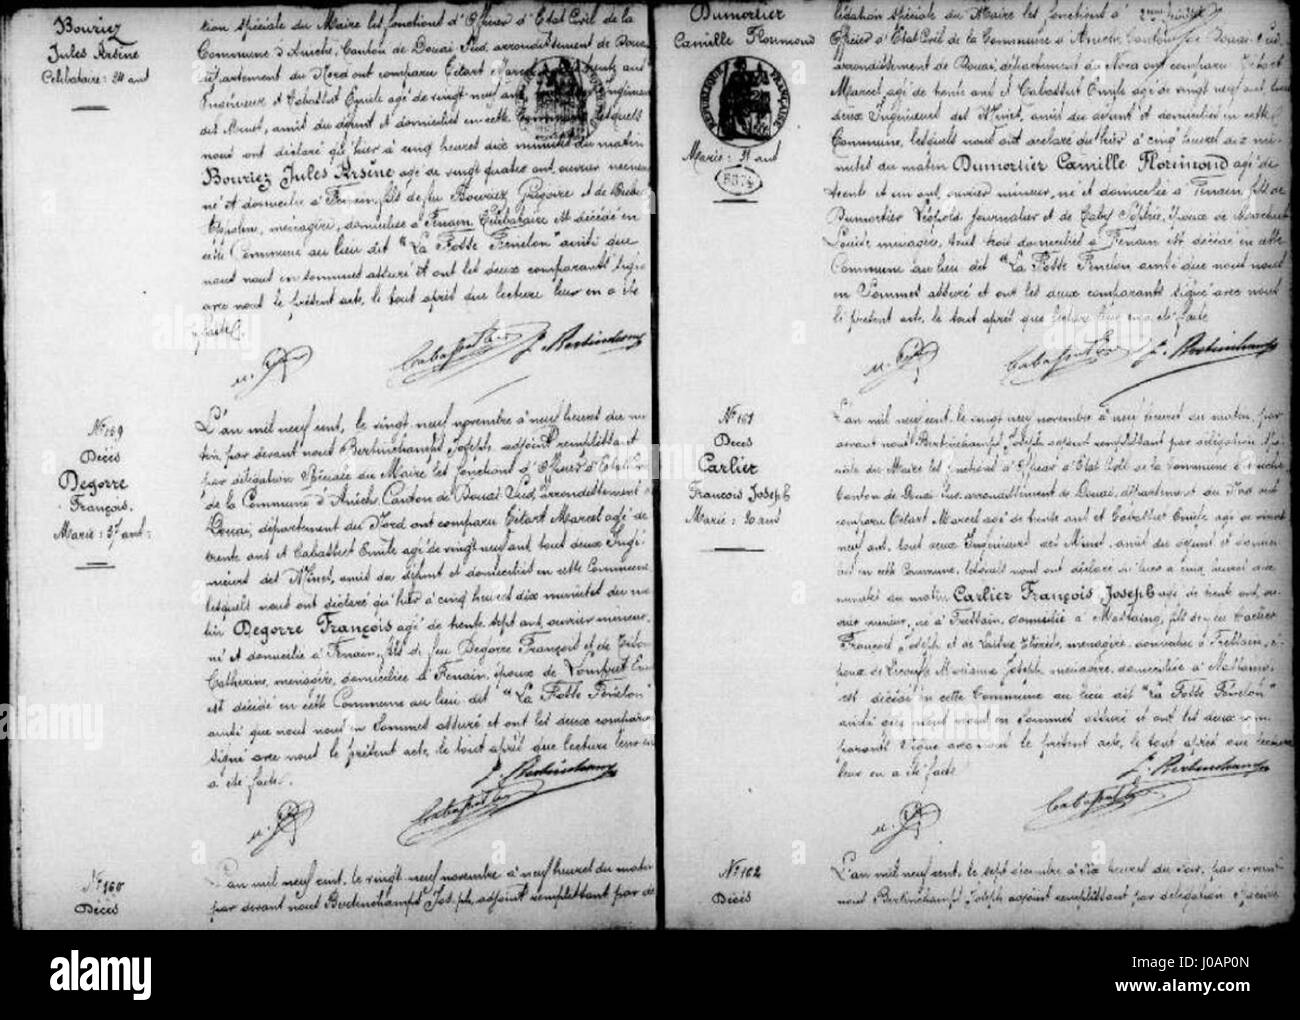 Bouriez
Jules Arsène
Célibataire : 24 ans
tion spéciale du Maire les fonctions d'Officier d'Etat Civil de la
Commune d'Aniche, Canton de Douai Sud, arrondissement de Douai
département du Nord ont comparu Citart Marcel trente ans
Ingénieur et Cabassut Emile agé de vingt neuf ans Ingénieurs
des Mines, amis du défunt et domiciliés en cette Commune lesquels
nous ont déclaré qu'hier à cinq heures dix minutes du matin
Bouriez Jules Arsène agé de vingt quatre ans ouvrier mineur
né et domicilié à Fenain, fils de feu Bouriez Grégoire et de
ménagère, domiciliée à Fenain, Célibataire est décédé en
cette Commune au lieu dit "La Fosse Fénelon" ainsi que
nous nous en sommes assuré et ont les deux comparants signé
avec nous le présent acte, le tout après que lecture leur en a été
faite.
Cabassut J. Bertinchamps
N° 159
Décès
Degorre
François.
Marié : 37 ans
L'an mil neuf cent, le vingt neuf novembre à neuf heures du ma-
tin, par devant nous Bertinchamps Joseph, adjoint remplissant
par délégation spéciale du Maire les fonctions d'Officier d'Etat Civil
de la Commune d'Aniche, Canton de Douai Sud, arrondissement de
Douai, département du Nord ont comparu Citart Marcel agé de
trente ans et Cabassut Emile agé de vingt neuf ans, tous deux Ingé-
nieurs des Mines, amis du défunt et domiciliés en cette Commune,
lesquels nous ont déclaré qu'hier à cinq heures dix minutes du ma-
tin Degorre François agé de trente sept ans, ouvrier mineur,
né et domicilié à Fenain, fils de feu Degorre François et de
Catherine, ménagère, domiciliée à Fenain, époux de
est décédé en cette Commune au lieu dit "La Fosse Fénelon"
ainsi que nous nous en sommes assuré et ont les deux comparants
signé avec nous le présent acte, le tout après que lecture leur en
a été faite.
J. Bertinchamps
Cabassut
N° 160
Décès
L'an mil neuf cent, le vingt neuf novembre à neuf heures du matin
par devant nous Bertinchamps Joseph, adjoint remplissant par dé
Dumortier
Camille Florimond
REPUBLIQUE FRANÇAISE
Marié : 31 ans
légation spéciale du Maire les fonctions d'
Officier d'Etat Civil de la Commune d'Aniche Canton de Douai Sud
arrondissement de Douai, département du Nord ont comparu Citart
Marcel agé de trente ans et Cabassut Emile agé de vingt neuf ans tous
deux Ingénieurs des Mines, amis du défunt et domiciliés en cette
Commune, lesquels nous ont déclaré qu'hier à cinq heures dix mi-
nutes du matin Dumortier Camille Florimond agé de
trente et un ans ouvrier mineur, né et domicilié à Fenain fils de
Dumortier Léopold, journalier et de époux de
Louise ménagère, tous trois domiciliés à Fenain est décédé en cette
Commune au lieu dit "La Fosse Fénelon, ainsi que nous nous
en sommes assuré et ont les deux comparants signé avec nous
le présent acte, le tout après que lecture leur en a été faite
Cabassut J. Bertinchamps
N° 161
Décès
Carlier
François Joseph
Marié : 30 ans
L'an mil neuf cent, le vingt neuf novembre à neuf heures du matin, par
devant nous Bertinchamps, Joseph adjoint remplissant par délégation spé-
ciale du Maire les fonctions d'Officier d'Etat Civil de la Commune d'Aniche
Canton de Douai Sud, arrondissement de Douai, département du Nord ont
comparu Citart Marcel agé de trente ans et Cabassut Emile agé de vingt
neuf ans, tous deux Ingénieurs des Mines, amis du défunt et domici-
liés en cette Commune, lesquels nous ont déclaré qu'hier à cinq heures dix
minutes du matin Carlier François Joseph agé de trente ans, ou-
vrier mineur, né à domicilié à Mastaing, fils de feu Carlier
François Joseph et de ménagère, domiciliée à é-
poux de Joseph, ménagère, domiciliée à Mastaing
est décédé en cette Commune au lieu dit "La Fosse Fénelon"
ainsi que nous nous en sommes assuré et ont les deux com-
parants signé avec nous le présent acte, le tout après que lecture
leur en a été faite
J. Bertinchamps
Cabassut
N° 162
Décès
L'an mil neuf cent, le sept décembre à six heures du soir, par devant
nous Bertinchamps Joseph adjoint remplissant par délégation spéciale
alamy
Image ID: J0AP0N
www.alamy.com